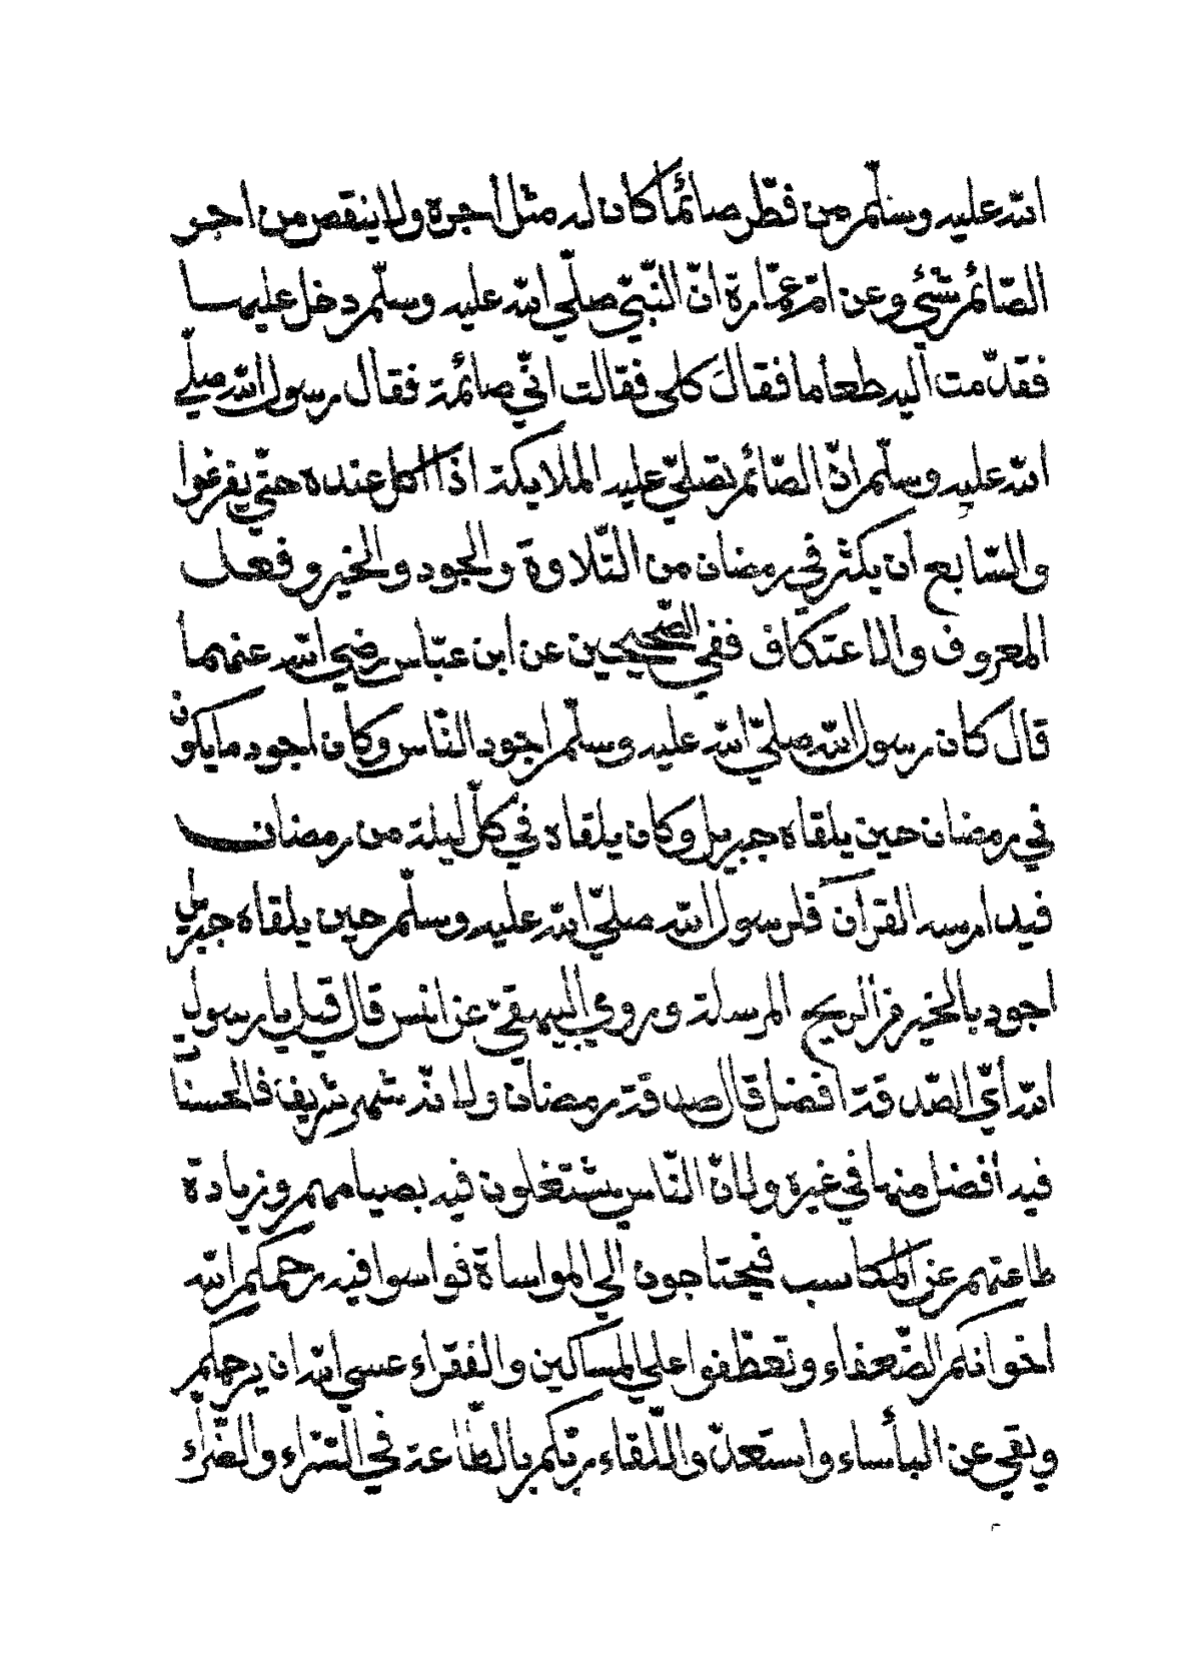 الله عليه وسلّم من فطّر صائماً كان له مثل أجره ولا ينقص من اجر
الصّائم شئي وعن امّ عمّارة انّ النّبيّ صلّي الله عليه وسلّم دخل عليها
فقدّمت اليه طعاما فقالَ كلى فقالت انّي صائمة فقال رسول الله صلي
الله عليه وسلّم انّ الصّائم تصلّي عليه الملايكة اذا اكل عنده حتّي يفرغوا
والسّابع أن يكثر في رمضان من التّلاوة والجود والخير وفعل
المعروف والاعتكاف ففي الصّحيحين عن ابن عبّاس رضي الله عنهما
قال كان رسول الله صلّي الله عليه وسلّم اجود النّاس وكان اجود مايكون
في رمضان حين يلقاه جبريل وكان يلقاه في كلّ ليلة من رمضان
فيدارسه القرآن فلرسول الله صلّي الله عليه وسلّم حين يلقاه جبريل
اجود بالخير من الريح المرسلة وروي البيهقيّ عن انس قال قيل يا رسول
الله أيّ الصّدقة أفضل قال صدقة رمضان ولانّه شهر شريف فالحسنات
فيه أفضل منها في غيره ولانّ النّاس يشتغلون فيه بصيامهم وزيادة
طاعتهم عن المكاسب فيحتاجون الي المواساة فواسوا فيه رحمكم الله
اخوانكم الضّعفاء وتعطّفوا علي المساكين والفقراء عسي الله ان يرحمكم
ويقي عن البأساء واستعدّوا للقاء ربّكم بالطّاعة في السّرّاء والضّرّاء